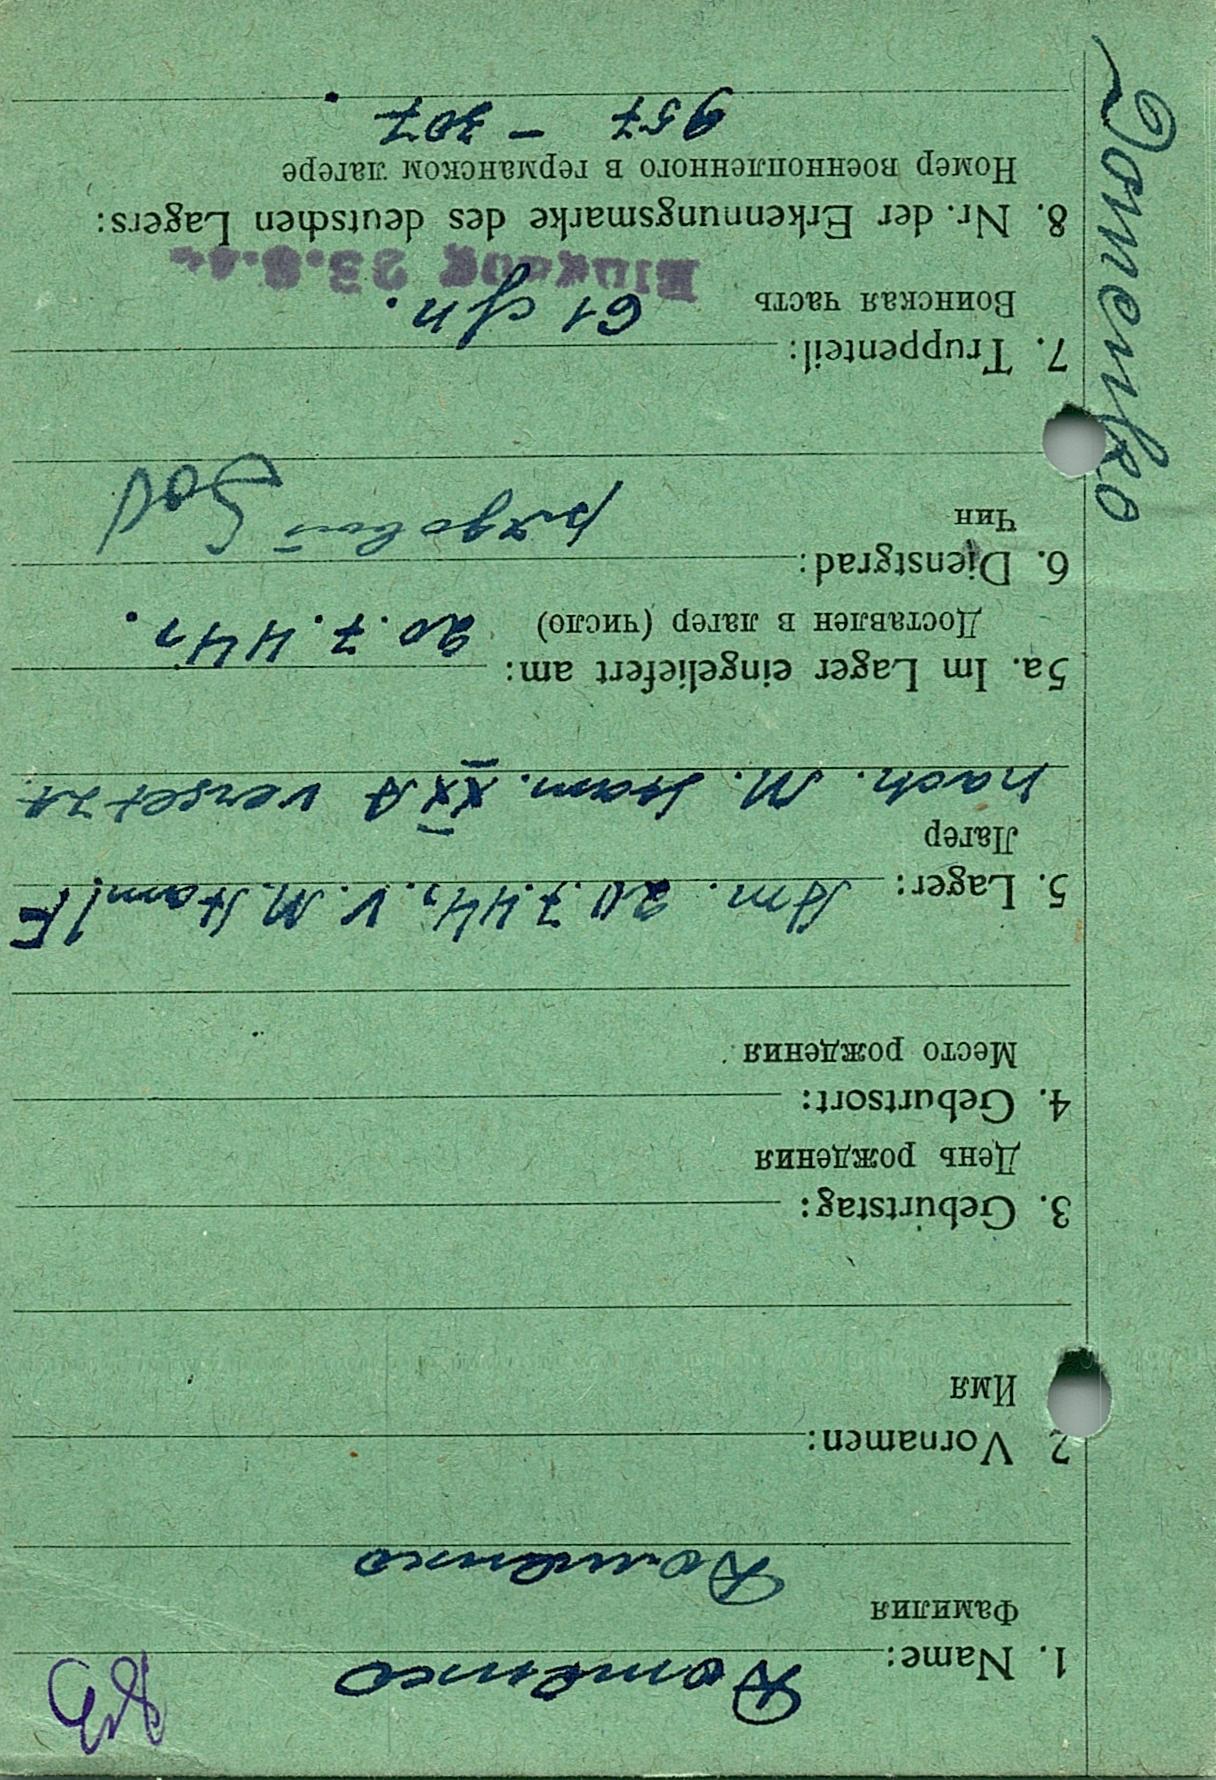 Доменко
1. Name:
Фамилия
Доменко
2 Vornamen:
Имя
3. Geburtstag:
День рождения
4. Geburtsort:
Место рождения
5. Lager: Am. 20.7.44, v. M. Stam/F
Лагер
nach. M. Stam. XXA versetzt
5a. Im Lager eingeliefert am:
Доставлен в лагер (число) 20.7.44г.
6. Dienstgrad:
Чин рядовой Sol
7. Truppenteil:
Воинская часть 61 с/п.
Eingang 23.8.44
8. Nr. der Erkennungsmarke des deutschen Lagers:
Номер военнопленного в германском лагере
957 – 307
Domenko